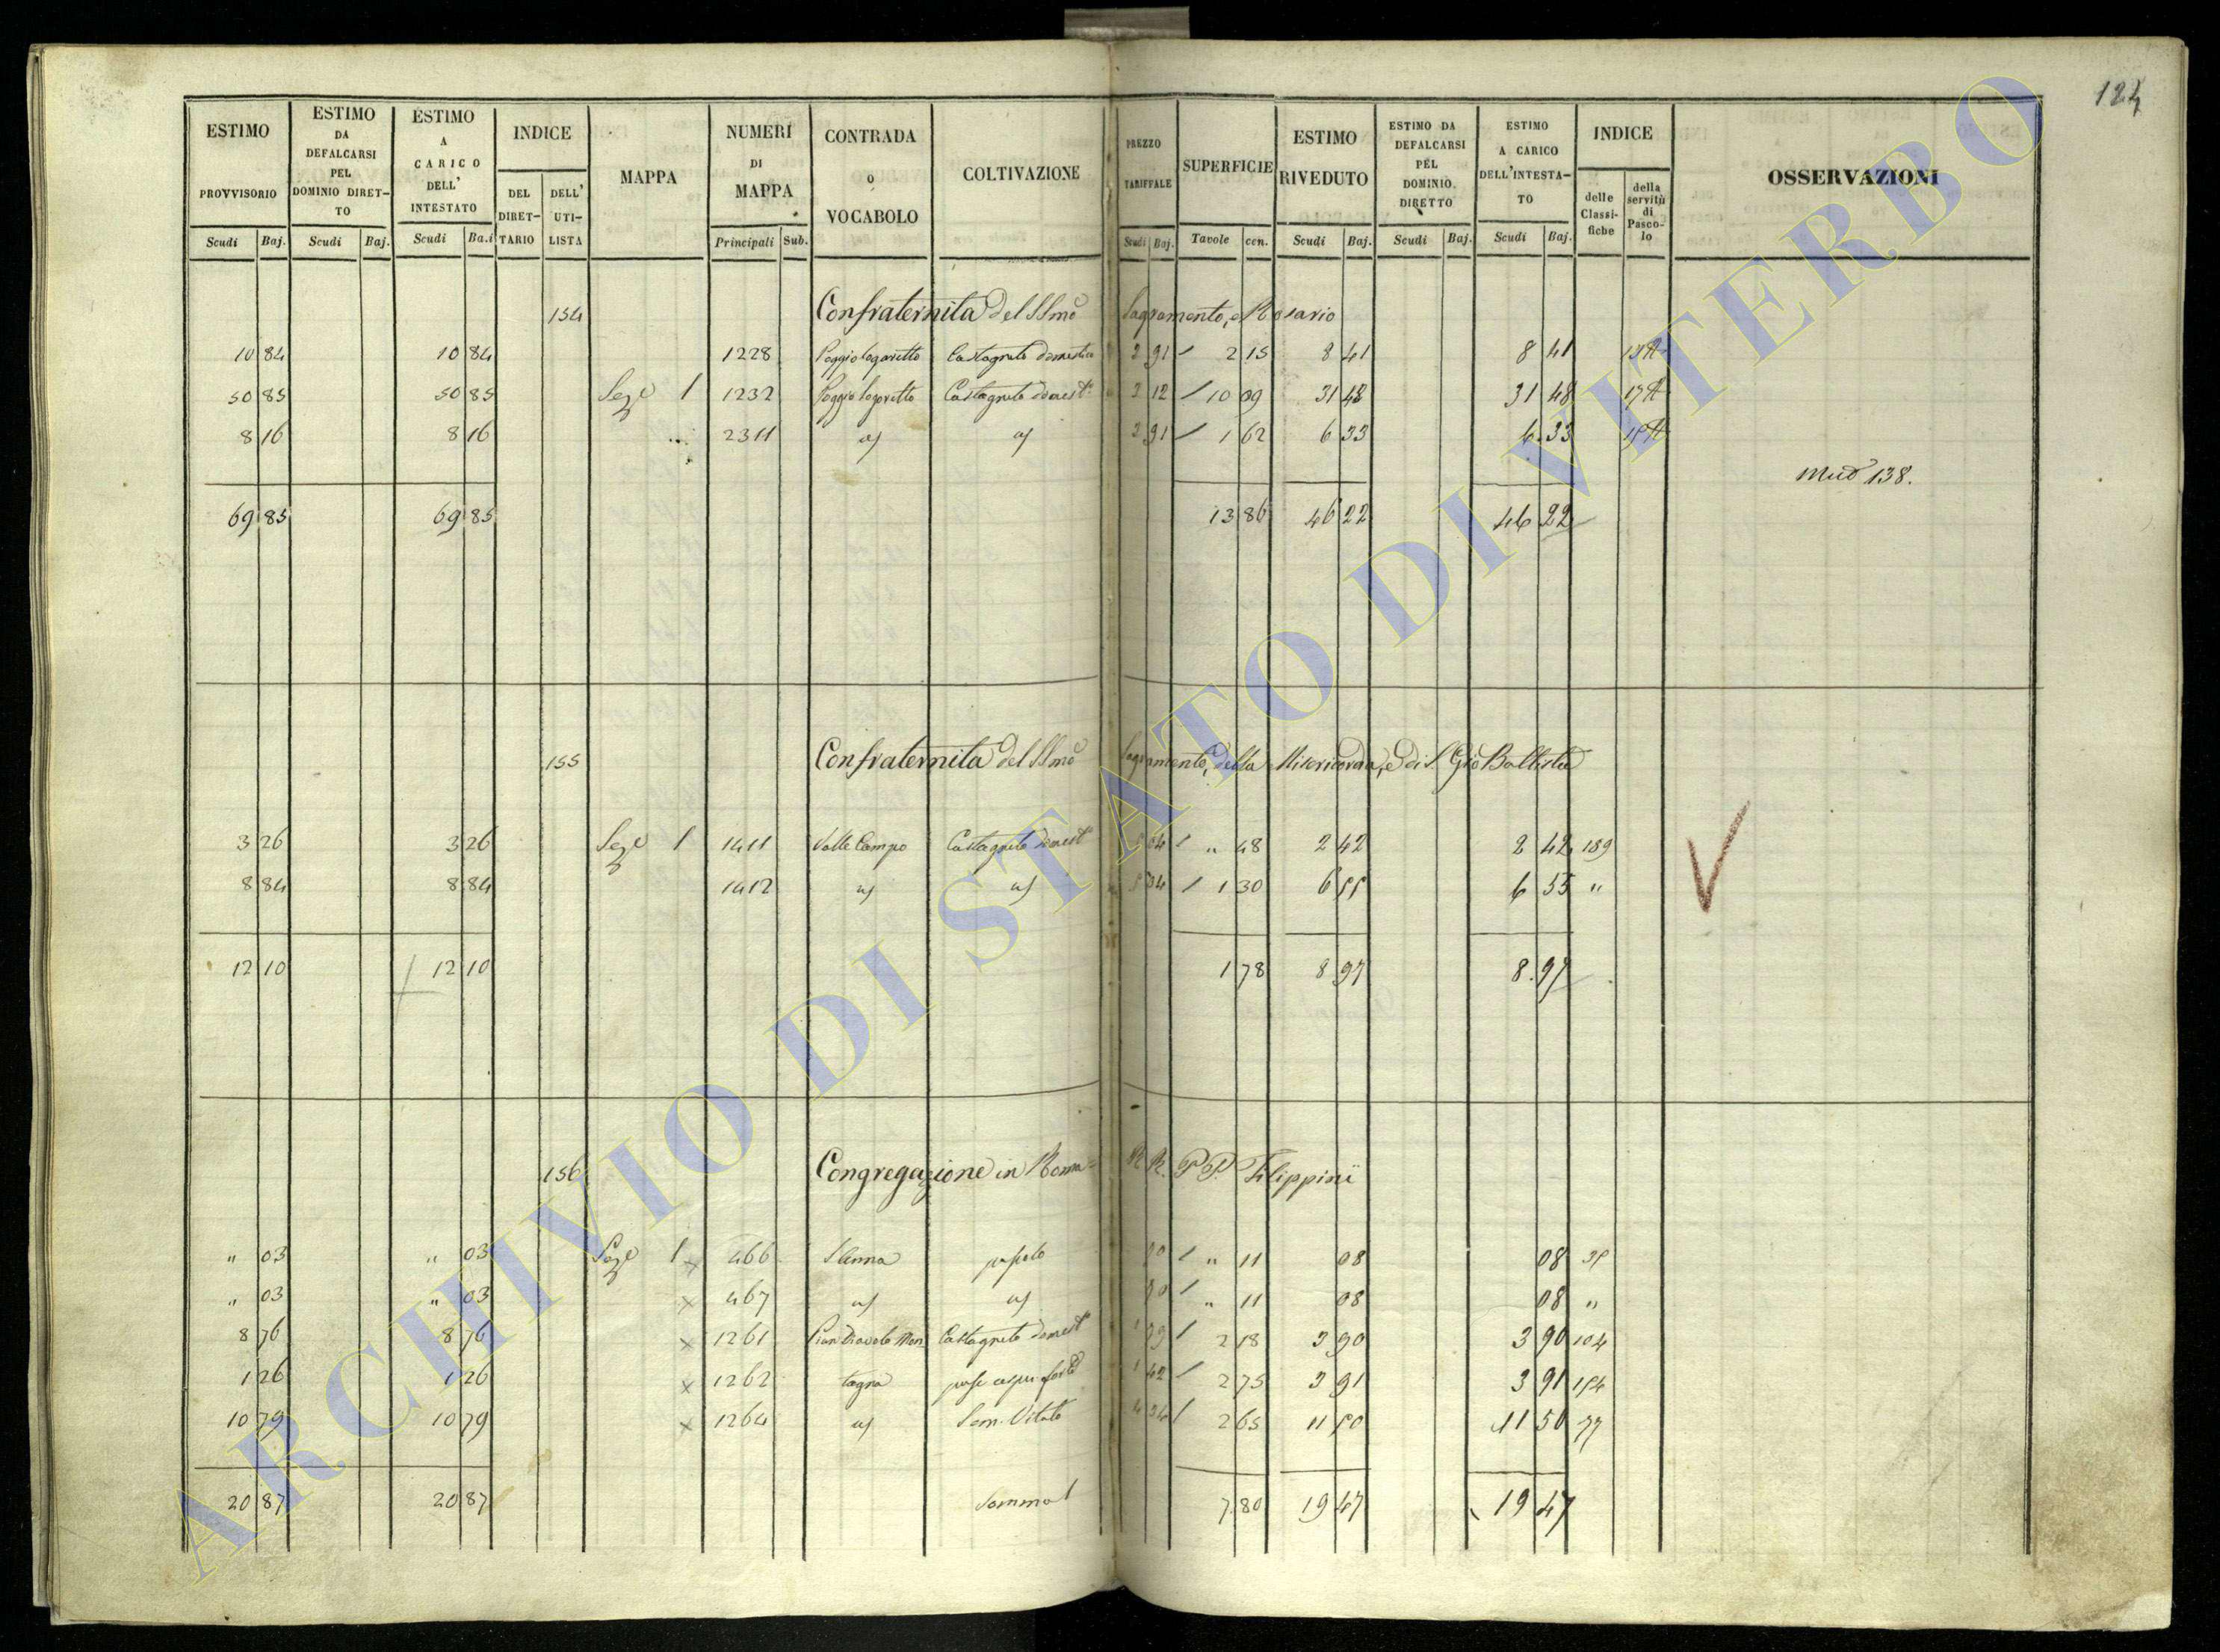 124
ESTIMO PROVVISORIO Scudi Baj. ESTIMO DA DEFALCARSI PEL DOMINIO DIRET-TO Scudi Baj. ESTIMO A CARICO DELL' INTESTATO Scudi Ba.i INDICE DEL DIRET-TARIO DELL' UTI-LISTA MAPPA NUMERI DI MAPPA Principali Sub. CONTRADA O VOCABOLO COLTIVAZIONE PREZZO TARIFFALE Scudi Baj. SUPERFICIE Tavole cen. ESTIMO RIVEDUTO Scudi Baj. ESTIMO DA DEFALCARSI PEL DOMINIO DIRETTO Scudi Baj. ESTIMO A CARICO DELL'INTESTA-TO Scudi Baj. INDICE delle Classi-fiche della servitù di Pasco-lo OSSERVAZIONI
154 Confraternita del SSmo Sagramento, e Rosario
10 84 10 84 1228 Castagneto domestico 3 91 2 15 8 41 8 41
50 85 50 85 Seze 1 1232 Castagneto domest. 3 12 10 09 31 48 31 48
8 16 8 16 2311 " " 3 91 1 62 6 33 6 33
Mud 138.
69 85 69 85 13 86 46 22 46 22
155 Confraternita del SSmo Sagramento, della Misericordia, e di S. Gio Battista
3 26 3 26 Seze 1 1411 Valle Campo Castagneto domest. 5 04 " 48 2 42 2 42 189
8 84 8 84 1412 " " 5 04 1 30 6 55 6 55 "
12 10 12 10 1 78 8 97 8 97
156 Congregazione in Roma RR. PP. Filippini
" 03 " 03 Seze 1 x 466 pascolo " 11 08 08
" 03 " 03 x 467 " " " 11 08 08 "
8 76 8 76 x 1261 Pian Diavolo Mon Castagneto domest. 2 18 3 90 3 90 104
1 26 1 26 x 1262 tagna 1 42 2 75 3 91 3 91 154
10 79 10 79 x 1264 " Sem. Vitato 4 34 2 65 11 50 11 50 77
20 87 20 87 Somma 7 80 19 47 19 47
ARCHIVIO DI STATO DI VITERBO